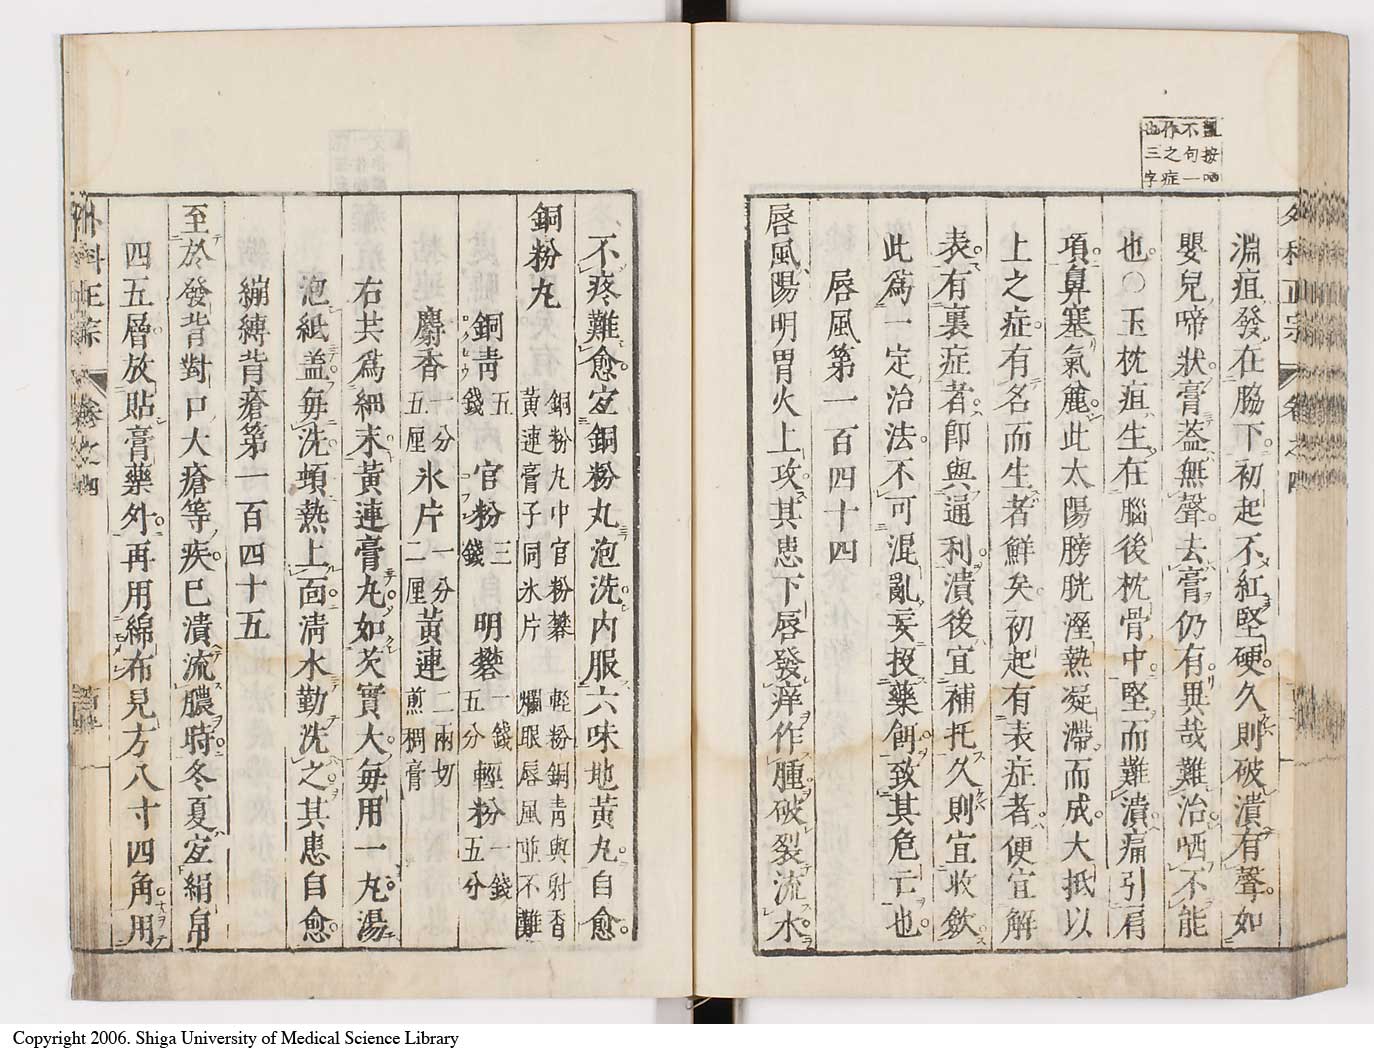 按哂
不句一
作之症
三字
外科正宗 卷之四
淵疽發在脇下初起不紅堅硬久則破潰有聲如
嬰兒啼狀膏葢無聲去膏仍有異哉難治哂不能
也○玉枕疽生在腦後枕骨中堅而難潰痛引肩
項鼻塞氣麄此太陽膀胱溼熱凝滯而成大抵以
上之症有名而生者鮮矣初起有表症者便宜解
表有裏症者卽與通利潰後宜補托久則宜收斂
此爲一定治法不可混亂妄投藥餌致其危亡也
唇風第一百四十四
唇風陽明胃火上攻其患下唇發痒作腫破裂流水
不疼難愈宜銅粉丸泡洗内服六味地黃丸自愈
銅粉丸 銅粉丸中官粉礬 輕粉銅靑與射香
黃連膏子同氷片 爛眼唇風並不難
銅靑五錢 官粉三錢 明礬一錢五分 輕粉一錢五分
麝香一分五厘 氷片一分二厘 黃連二兩切煎稠膏
右共爲細末黃連膏丸如芡實大每用一丸湯
泡紙盖每洗頓熱上面淸水勤洗之其患自愈
繃縛背瘡第一百四十五
至於發背對口大瘡等疾已潰流膿時冬夏宜絹帛
四五層放貼膏藥外再用綿布見方八寸四角用
外科正宗 卷之四
Copyright 2006. Shiga University of Medical Science Library